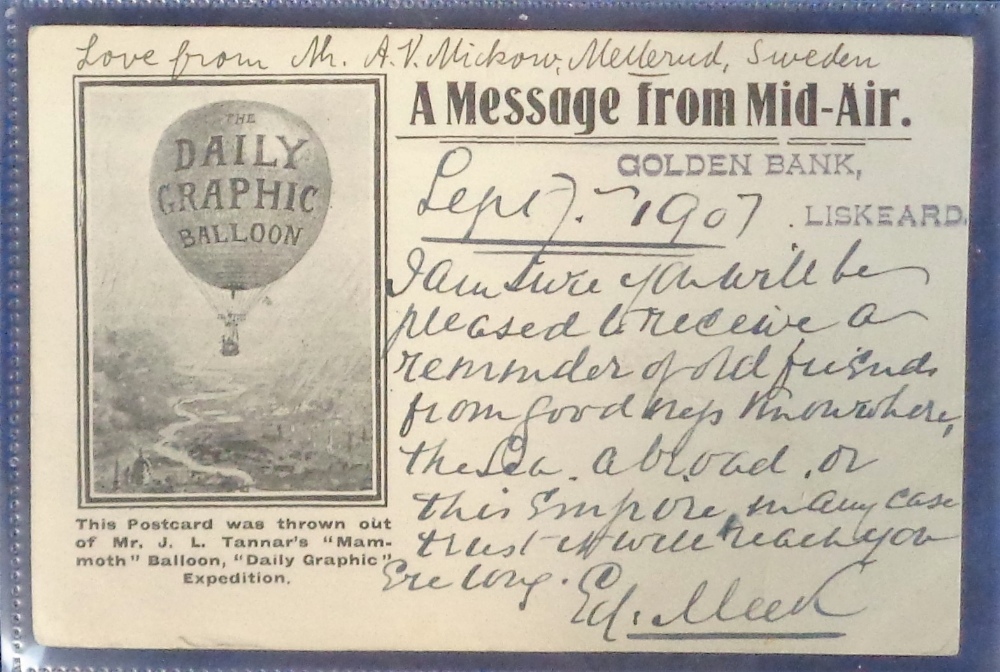 Love from Mr. A. V. Mickow, Mellerud, Sweden
A Message from Mid-Air.
GOLDEN BANK,
LISKEARD.
Sept 7. 1907.
THE
DAILY
GRAPHIC
BALLOON
I am sure you will be
pleased to receive a
reminder of old friends
from goodness knows where,
the Sea, abroad, or
this Empire, in any case
trust it will reach you
ere long.
Ed. Meek
This Postcard was thrown out
of Mr. J. L. Tannar's "Mam-
moth" Balloon, "Daily Graphic"
Expedition.